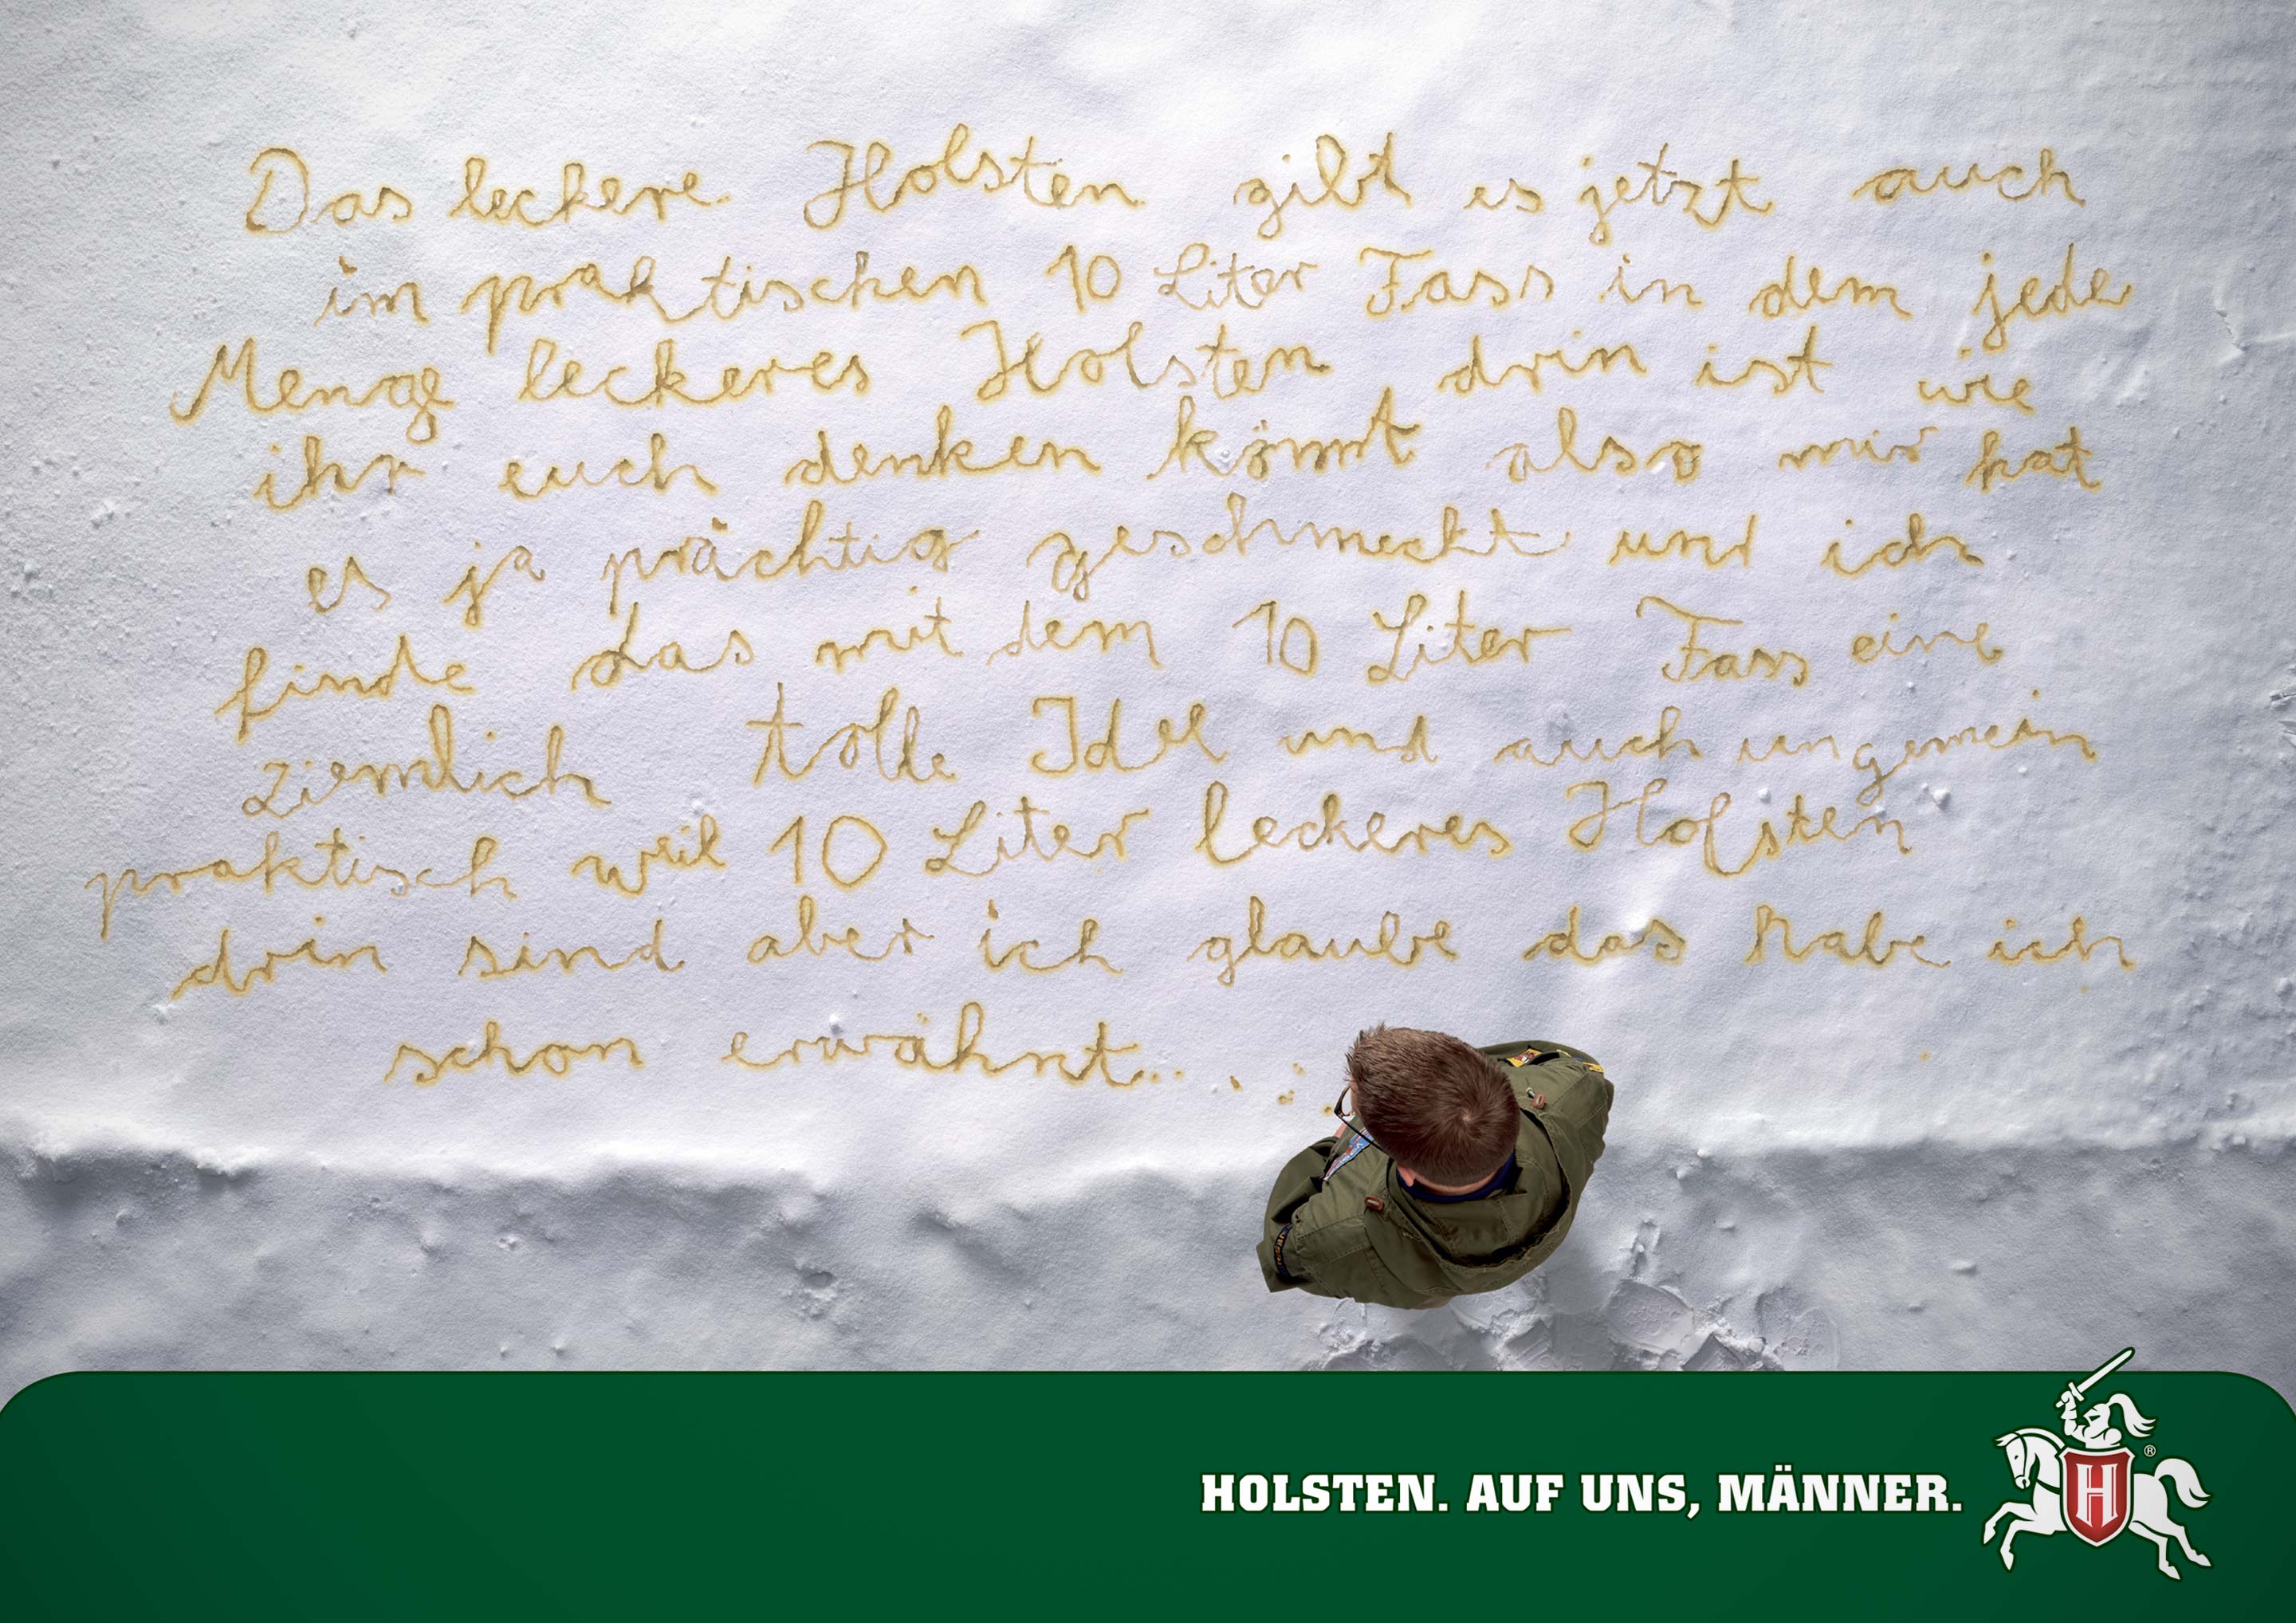 Das leckere Holsten gibt es jetzt auch
im praktischen 10 Liter Fass in dem jede
Menge leckeres Holsten drin ist wie
ihr euch denken könnt also mir hat
es ja prächtig geschmeckt und ich
finde das mit dem 10 Liter Fass eine
ziemlich tolle Idee und auch ungemein
praktisch weil 10 Liter leckeres Holsten
drin sind aber ich glaube das habe ich
schon erwähnt.....
HOLSTEN. AUF UNS, MÄNNER.
H
®